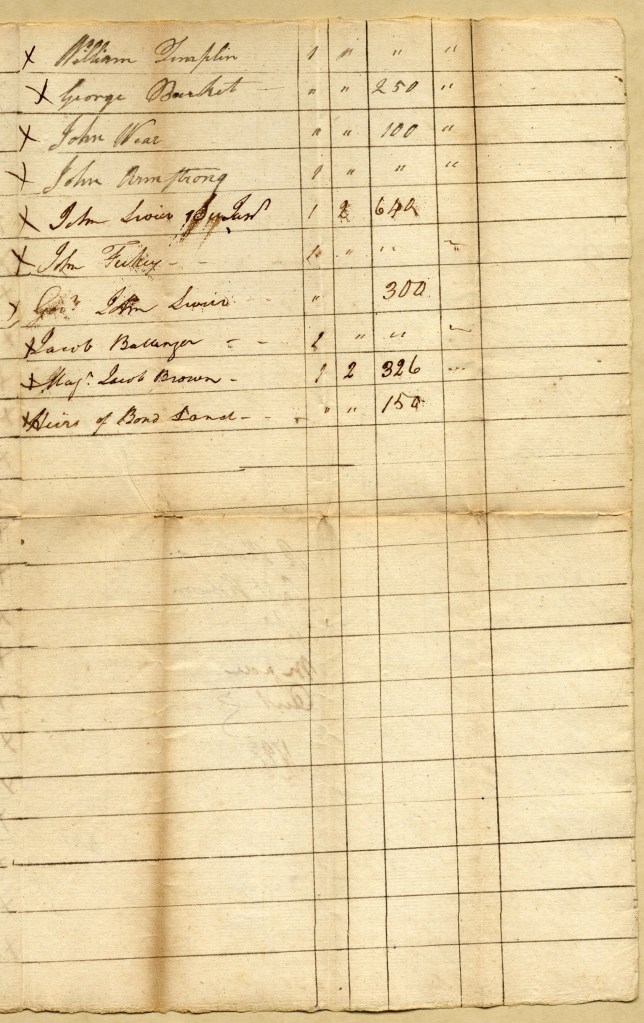 x William Templin 1 " " "
x George Burket - " " 250 "
x John Wear " " 100 "
x John Armstrong 1 " " "
x John Sevier Junr 1 2 640
x John - - " " "
x Govr John Sevier - - " 300
x Jacob Ballenger - - 1 " " "
x Majr Jacob Brown - 1 2 326 "
x Heirs of Bond Land - - " " 150